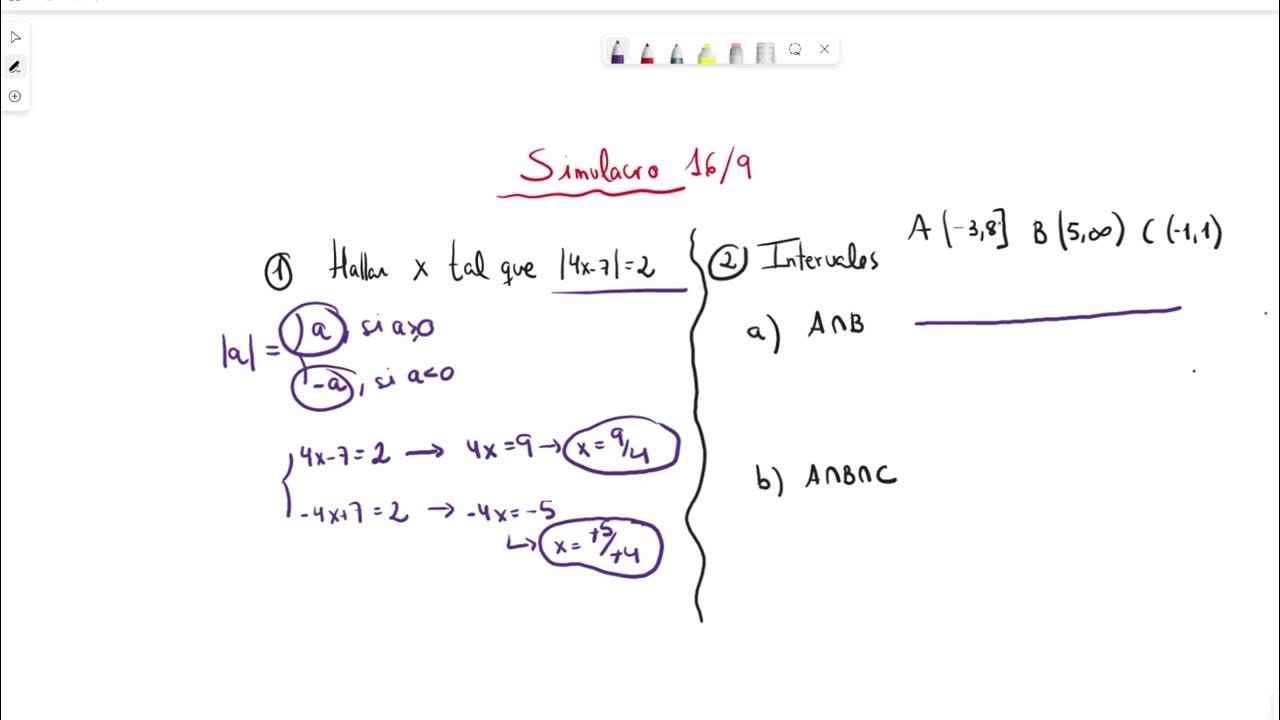 Simulacro 16/9
① Hallar x tal que |4x-7|=2
|a| = { a, si a≥0
-a, si a<0
{ 4x-7=2 → 4x=9 → x=9/4
-4x+7=2 → -4x=-5
↳ x=+5/+4
② Intervalos A(-3,8] B(5,∞) C(-1,1)
a) A∩B
b) A∩B∩C